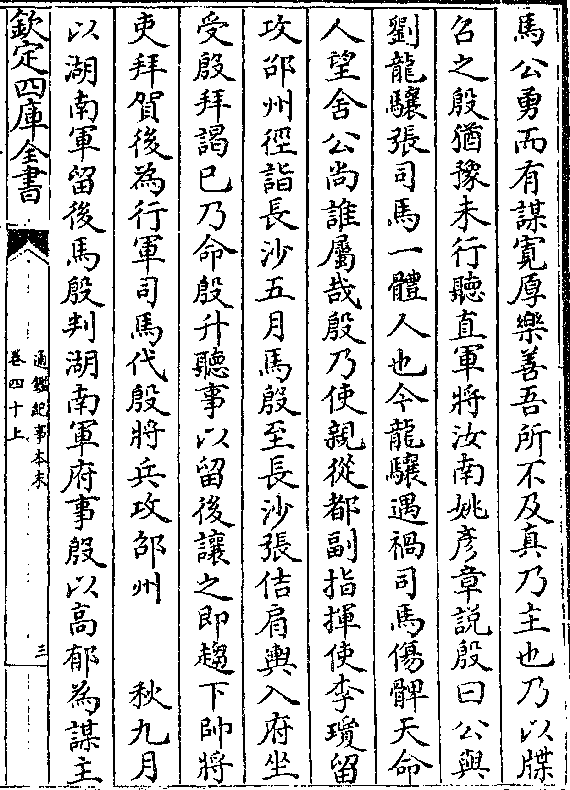 馬公勇而有謀寛厚樂善吾所不及真乃主也乃以牒
召之殷猶豫未行聽直軍將汝南姚彦章説殷曰公與
劉龍驤張司馬一體人也今龍驤遇禍司馬傷髀天命
人望舍公尚誰屬哉殷乃使親從都副指揮使李瓊留
攻邵州徑詣長沙五月馬殷至長沙張佶肩輿入府坐
受殷拜謁已乃命殷升聽事以留後讓之即趨下帥將
吏拜賀後為行軍司馬代殷將兵攻邵州　秋九月
以湖南軍留後馬殷判湖南軍府事殷以高郁為謀主
欽定四庫全書
通鑑紀事本末
卷四十上
三